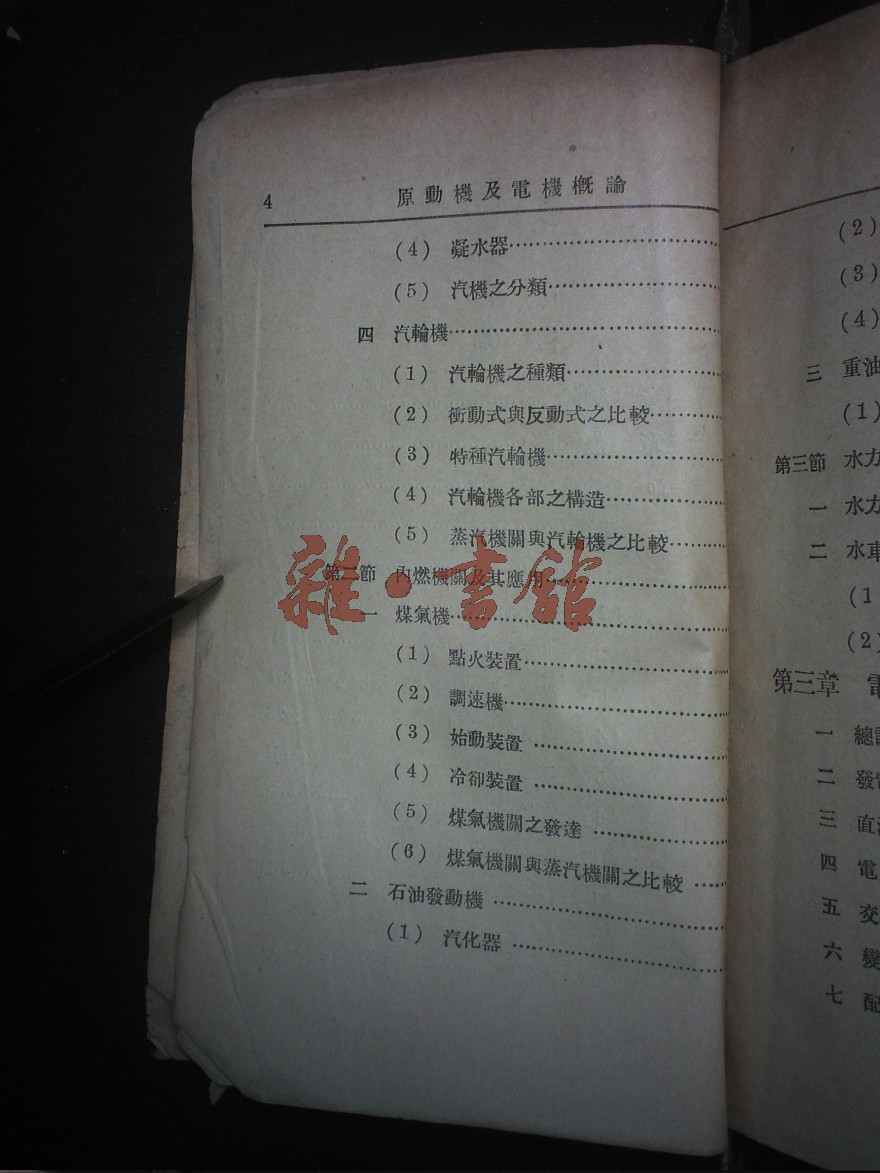 4 原動機及電機概論
(4) 凝水器
(5) 汽機之分類
四 汽輪機
(1) 汽輪機之種類
(2) 衝動式與反動式之比較
(3) 特種汽輪機
(4) 汽輪機各部之構造
(5) 蒸汽機關與汽輪機之比較
第二節 內燃機關及其應用
一 煤氣機
(1) 點火裝置
(2) 調速機
(3) 始動裝置
(4) 冷卻裝置
(5) 煤氣機關之發達
(6) 煤氣機關與蒸汽機關之比較
二 石油發動機
(1) 汽化器
雜·書館
(2)
(3)
(4)
三 重油
(1)
第三節 水力
一 水力
二 水車
(1
(2)
第三章 電
一 總
二 發電
三 直
四 電
五 交
六 變
七 配